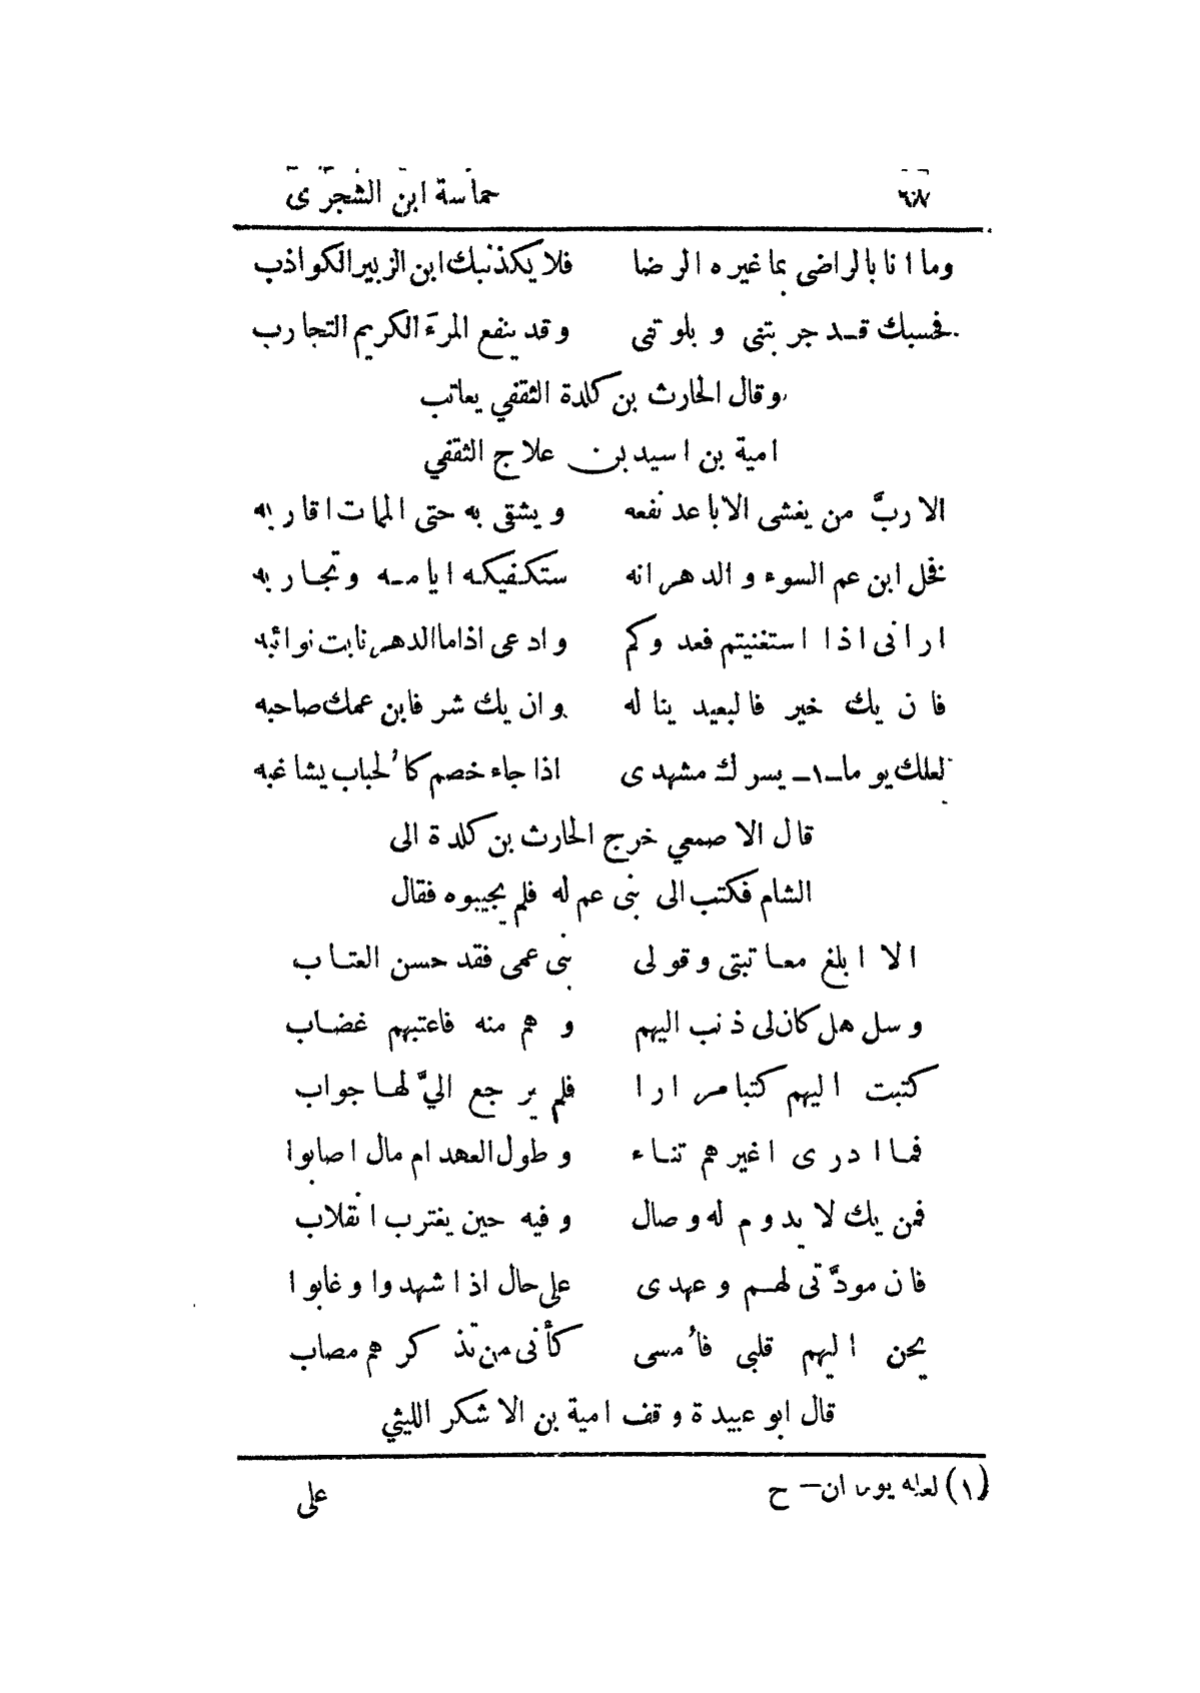 حماسة ابن الشجرى
وما انا بالراضى بما غيره الرضا فلا يكذبنك ابن الزبير الكواذب
فحسبك قد جربتنى و بلوتنى وقد ينفع المرءَ الكريم التجارب
وقال الحارث بن كلدة الثقفي يعاتب
امية بن اسيد بن علاج الثقفي
الا ربَّ من يغشى الاباعد نفعه ويشقى به حتى الممات اقاربه
فخل ابن عم السوء والدهر انه ستكفيكه ايامه وتجاربه
ارانى اذا استغنيتم فعدوكم وادعى اذا ما الدهر نابت نوائبه
فان يك خير فالبعيد يناله وان يك شر فابن عمك صاحبه
لعلك يوما -١- يسرك مشهدى اذا جاء خصم كالحباب يشاغبه
قال الاصمعي خرج الحارث بن كلدة الى
الشام فكتب الى بنى عم له فلم يجيبوه فقال
الا ابلغ معاتبتى وقولى بنى عمى فقد حسن العتاب
وسل هل كان لى ذنب اليهم وهم منه فاعتبهم غضاب
كتبت اليهم كتبا مرارا فلم يرجع اليَّ لها جواب
فما ادرى اغيرهم تناء وطول العهد ام مال اصابوا
فمن يك لا يدوم له وصال وفيه حين يغترب انقلاب
فان مودَّتى لهم وعهدى على حال اذا شهدوا وغابوا
يحن اليهم قلبى فأمسى كأنى من تذكرهم مصاب
قال ابو عبيدة وقف امية بن الاشكر الليثي
(١) لعله يوما ان – ح
على